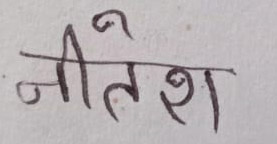 नीतेश